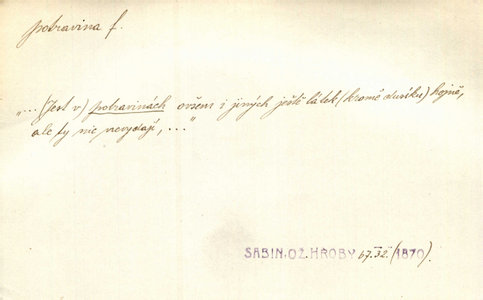 potravina f.
"... (Jest v) potravinách ovšem i jiných ještě látek (kromě dusíku) hojně,
ale ty nic nevydají, ..."
SABIN.OŽ.HROBY 67.32. (1870).